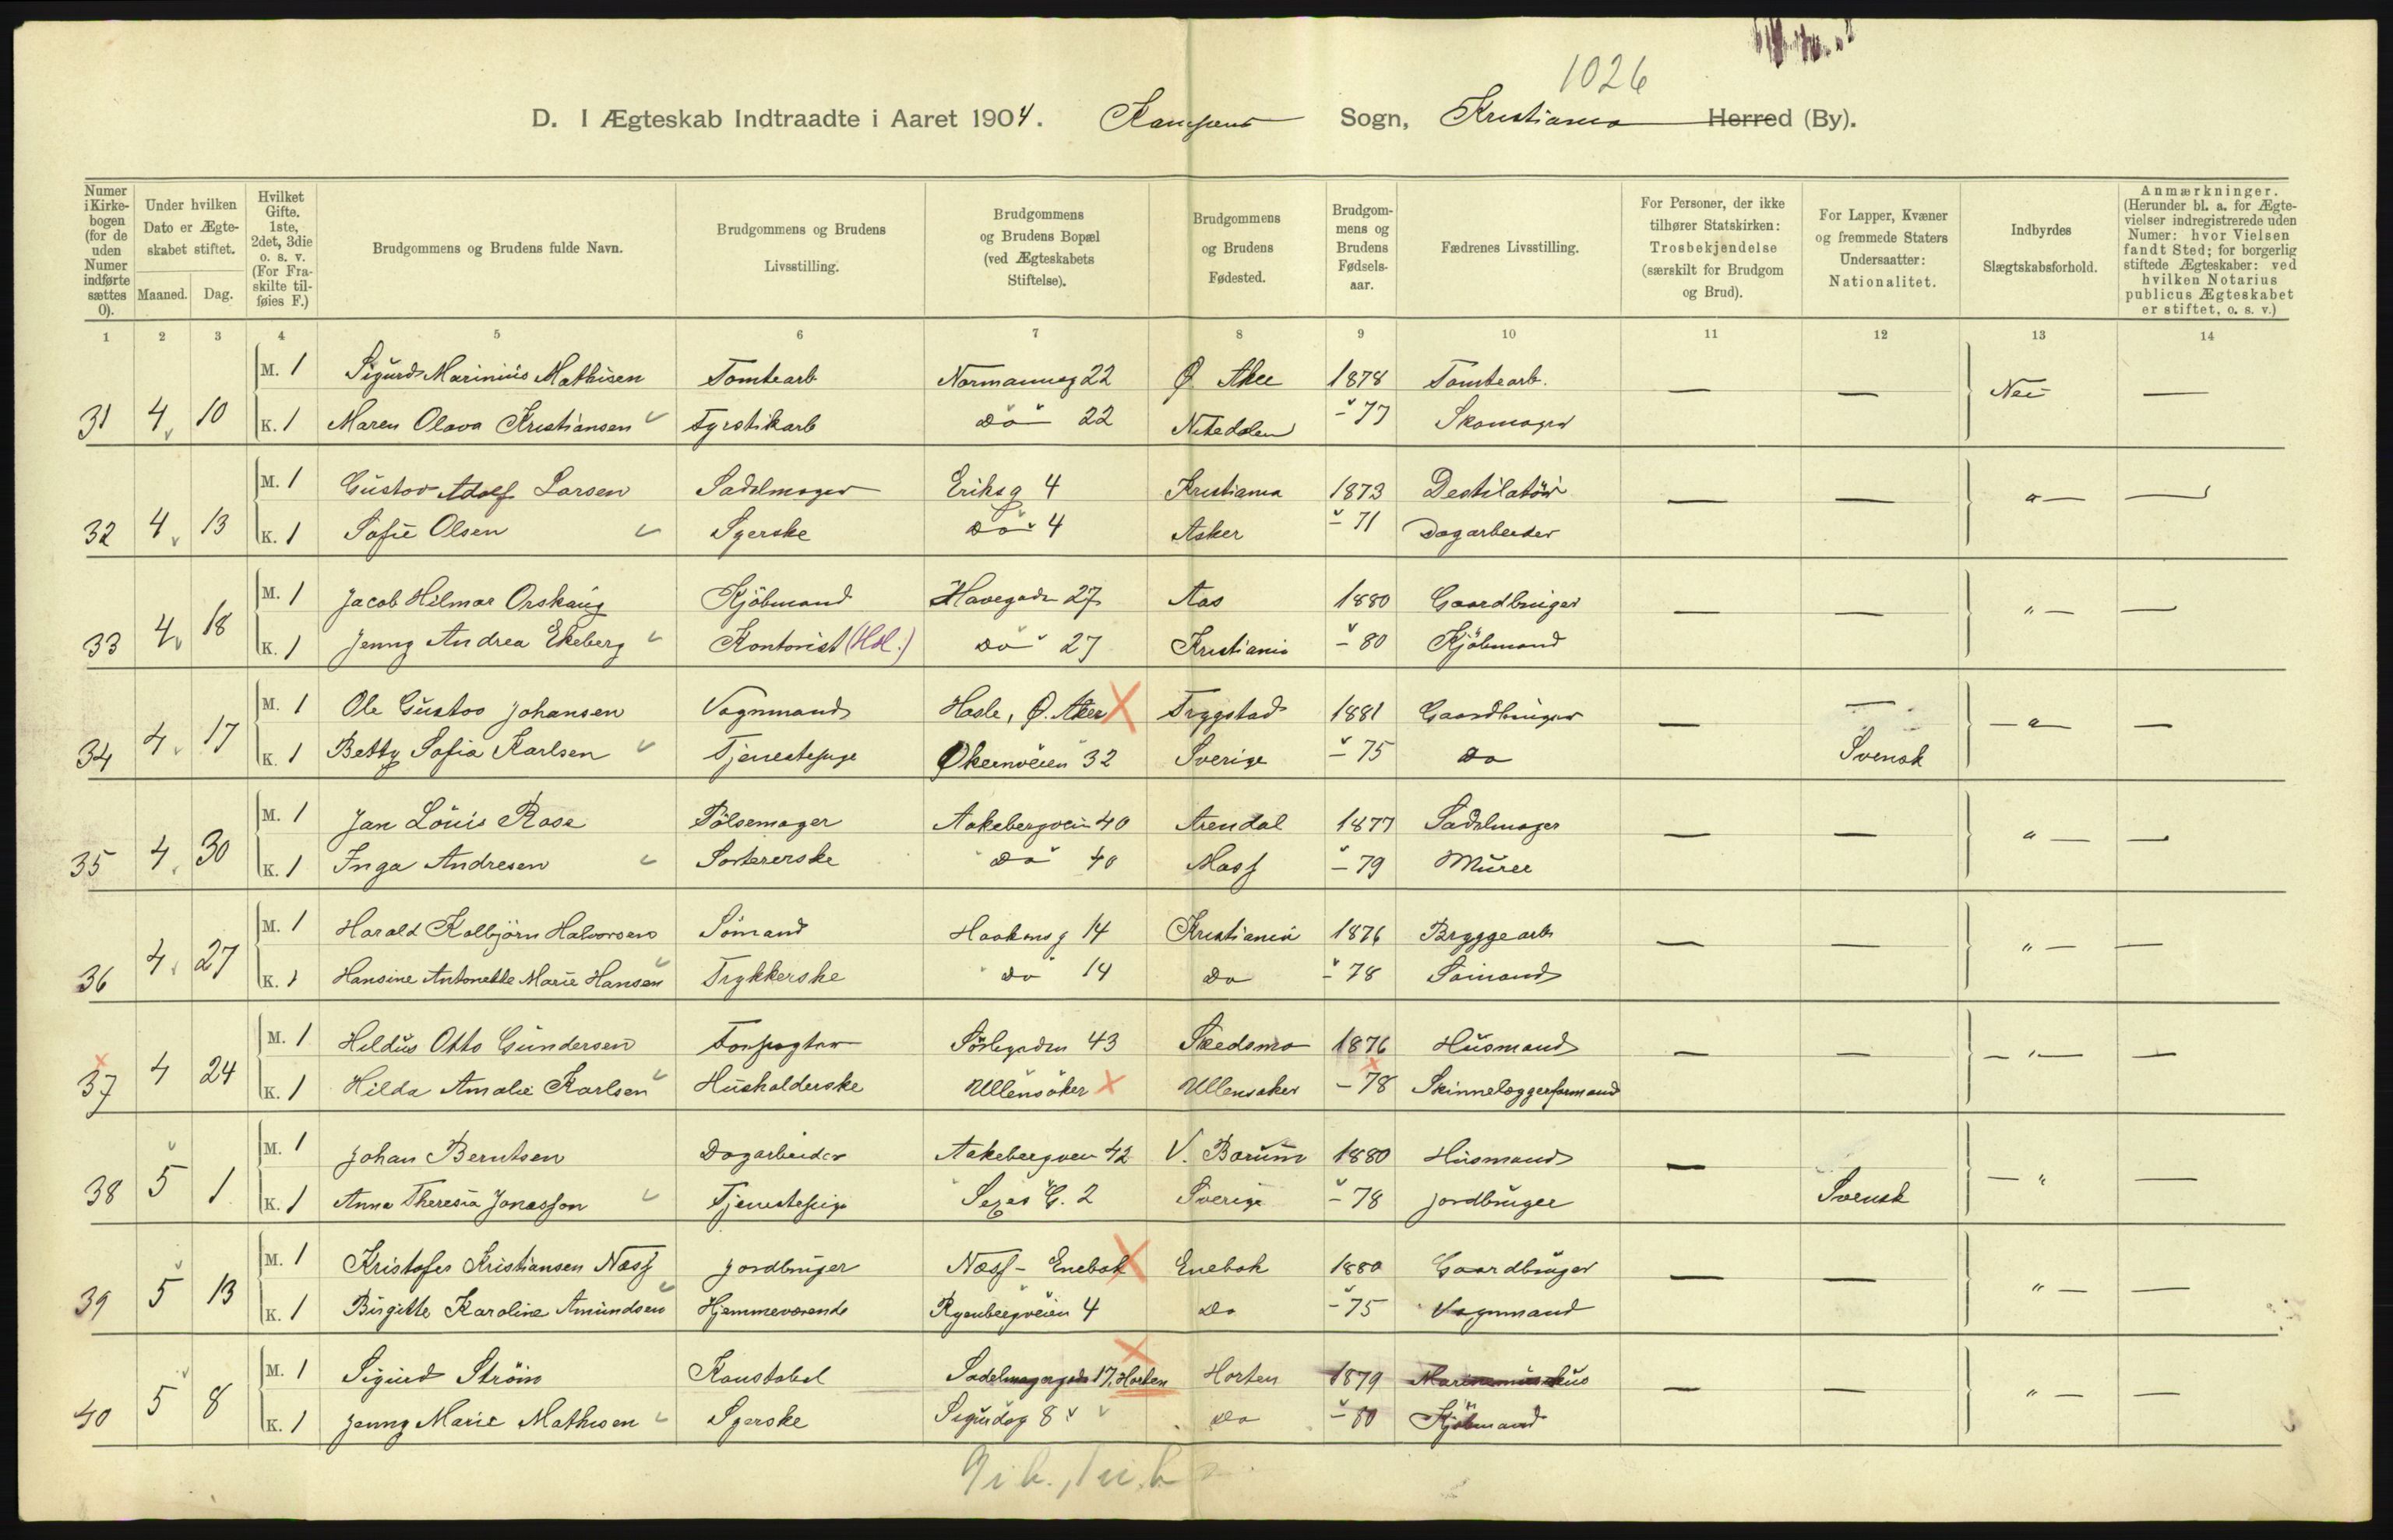 1026
D. I Ægteskab Indtraadte i Aaret 1904. Kampens Sogn, Kristiania Herred (By).
Numer i Kirkebogen (for de uden Numer indførte sættes 0).
Under hvilken Dato er Ægteskabet stiftet.
Maaned. Dag.
Hvilket Gifte. 1ste, 2det, 3die o. s. v. (For Fraskilte tilføies F.)
Brudgommens og Brudens fulde Navn.
Brudgommens og Brudens Livsstilling.
Brudgommens og Brudens Bopæl (ved Ægteskabets Stiftelse).
Brudgommens og Brudens Fødested.
Brudgommens og Brudens Fødselsaar.
Fædrenes Livsstilling.
For Personer, der ikke tilhører Statskirken: Trosbekjendelse (særskilt for Brudgom og Brud).
For Lapper, Kvæner og fremmede Staters Undersaatter: Nationalitet.
Indbyrdes Slægtskabsforhold.
Anmærkninger. (Herunder bl. a. for Ægtevielser indregistrerede uden Numer: hvor Vielsen fandt Sted; for borgerlig stiftede Ægteskaber: ved hvilken Notarius publicus Ægteskabet er stiftet, o. s. v.)
1 2 3 4 5 6 7 8 9 10 11 12 13 14
M. 1 Sigurd Marinius Mathisen Tomtearb Normannsg 22 Ø. Aker 1878 Tomtearb. — — Nei —
31 4 10 K. 1 Maren Olava Kristiansen Fyrstikarb Do 22 Nitedalen - 77 Skomager
M. 1 Gustav Adolf Larsen Sadelmager Eriksg 4 Kristiania 1873 Destilatör — — " — —
32 4 13 K. 1 Sofie Olsen Syerske Do 4 Asker - 71 Dagarbeider
M. 1 Jacob Hilmar Orskaug Kjöbmand Havegaden 27 Aas 1880 Gaardbruger — — " — —
33 4 18 K. 1 Jenny Andrea Ekeberg Kontorist (Hdl.) Do 27 Kristiania - 80 Kjöbmand
M. 1 Ole Gustav Johansen Vognmand Hasle, Ø. Aker Trygstad 1881 Gaardbruger — — — " — —
34 4 17 K. 1 Betty Sofia Karlsen Tjenestepige Økernveien 32 Sverige - 75 Do Svensk
M. 1 Jan Louis Rose Pölsemager Aakebergveien 40 Arendal 1877 Sadelmager — — " — —
35 4 30 K. 1 Inga Andresen Sortererske Do 40 Moss - 79 Murer
M. 1 Harald Kolbjörn Halvorsen Sömand Haakonsg 14 Kristiania 1876 Bryggearb — — " — —
36 4 27 K. 1 Hansine Antonette Marie Hansen Trykkerske Do 14 Do - 78 Sömand
M. 1 Hildus Otto Gundersen Forpagter Sörligaden 43 Skedsmo 1876 Husmand — — — " — —
37 4 24 K. 1 Hilda Amalie Karlsen Husholderske Ullensaker Ullensaker - 78 Skinnelæggerformand
M. 1 Johan Berntsen Dagarbeider Aakebergveien 42 V. Bærum 1880 Husmand — — " —
38 5 1 K. 1 Anna Theresia Jonasson Tjenestepige G. 2 Sverige - 78 Jordbruger Svensk
M. 1 Kristofer Kristiansen Næss Jordbruger Næss - Enebak Enebak 1880 Gaardbruger — — " — —
39 5 13 K. 1 Birgitte Karoline Amundsen Hjemmeværende Ryenbergveien 4 Do - 75 Vognmand
M. 1 Sigurd Ström Konstabel Sadelmagergaden 17, Horten Horten 1879 — — " — —
40 5 8 K. 1 Jenny Marie Mathisen Syerske Sigurdsg 8 Do - 80 Kjöbmand